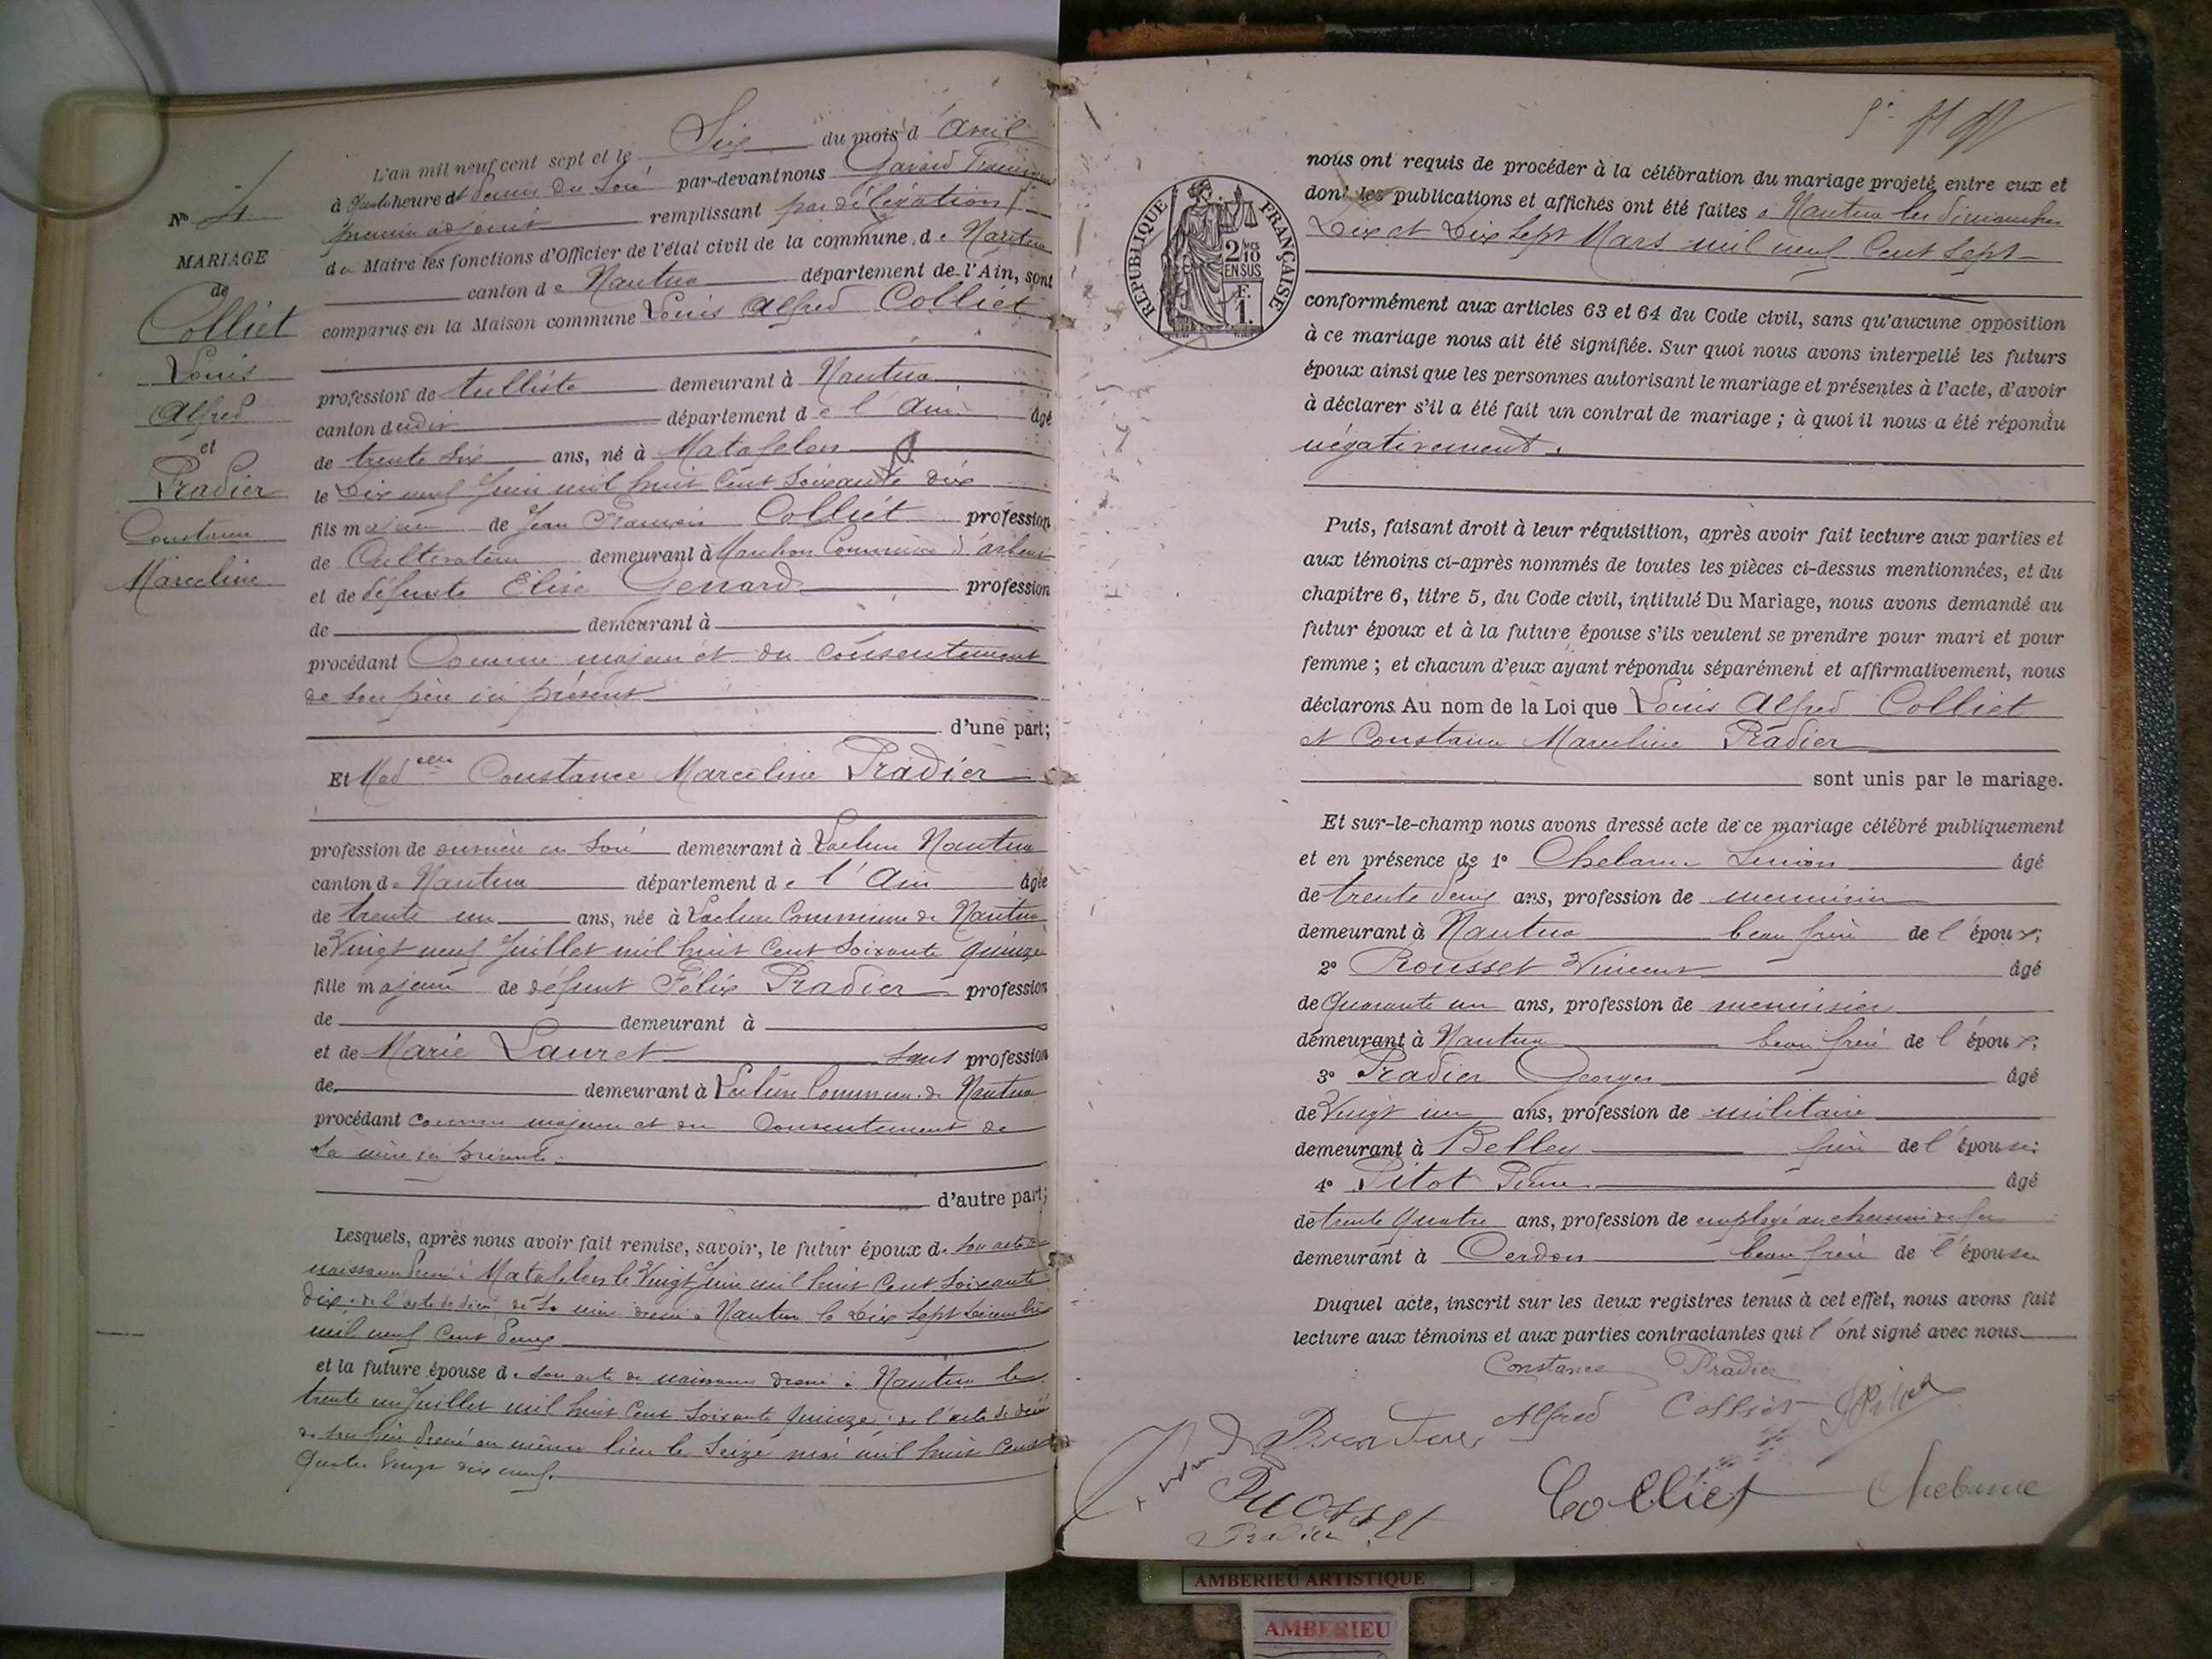 N° 4
MARIAGE
de
Colliet
Louis
Alfred
et
Pradier
Constance
Marceline
L'an mil neuf cent sept et le Six du mois d'avril
à heure et demie du soir par-devant nous
premier adjoint remplissant par délégation
du Maire les fonctions d'Officier de l'état civil de la commune de Nantua
canton de Nantua département de l'Ain, sont
comparus en la Maison commune Louis Alfred Colliet
profession de tulliste demeurant à Nantua
canton dudit département de l'Ain âgé
de trente six ans, né à Matafelon
le Dix neuf Juin mil huit cent soixante dix
fils majeur de Jean François Colliet profession
de Cultivateur demeurant à Commune d'arbent
et de défunte Elise Genard profession
de demeurant à
procédant comme majeur et du consentement
de son père ici présent
d'une part;
Et Mad elle Constance Marceline Pradier
profession de ouvrière en soie demeurant à Lacluse Nantua
canton de Nantua département de l'Ain âgée
de trente un ans, née à Lacluse Commune de Nantua
le Vingt neuf Juillet mil huit cent soixante quinze
fille majeure de défunt Félix Pradier profession
de demeurant à
et de Marie Lauret sans profession
de demeurant à Lacluse Commune de Nantua
procédant comme majeure et du consentement de
sa mère ici présente.
d'autre part;
Lesquels, après nous avoir fait remise, savoir, le futur époux de son acte de
naissance dressé à Matafelon le Vingt Juin mil huit cent soixante
dix, de l'acte de décès de sa mère dressé à Nantua le Dix sept Décembre
mil neuf cent deux
et la future épouse de son acte de naissance dressé à Nantua le
trente un Juillet mil huit cent soixante quinze; de l'acte de décès
de son père dressé au même lieu le Seize mai mil huit cent
quatre vingt dix neuf.
RÉPUBLIQUE FRANÇAISE
2/10 EN SUS
F.
1.
nous ont requis de procéder à la célébration du mariage projeté entre eux et
dont les publications et affiches ont été faites à Nantua les dimanches
Dix et Dix sept Mars mil neuf cent sept
conformément aux articles 63 et 64 du Code civil, sans qu'aucune opposition
à ce mariage nous ait été signifiée. Sur quoi nous avons interpellé les futurs
époux ainsi que les personnes autorisant le mariage et présentes à l'acte, d'avoir
à déclarer s'il a été fait un contrat de mariage ; à quoi il nous a été répondu
négativement.
Puis, faisant droit à leur réquisition, après avoir fait lecture aux parties et
aux témoins ci-après nommés de toutes les pièces ci-dessus mentionnées, et du
chapitre 6, titre 5, du Code civil, intitulé Du Mariage, nous avons demandé au
futur époux et à la future épouse s'ils veulent se prendre pour mari et pour
femme ; et chacun d'eux ayant répondu séparément et affirmativement, nous
déclarons Au nom de la Loi que Louis Alfred Colliet
et Constance Marceline Pradier
sont unis par le mariage.
Et sur-le-champ nous avons dressé acte de ce mariage célébré publiquement
et en présence de 1° Chebance âgé
de trente deux ans, profession de menuisier
demeurant à Nantua beau frère de l'époux;
2° Rousset Vincent âgé
de quarante un ans, profession de menuisier
demeurant à Nantua beau frère de l'époux;
3° Pradier Georges âgé
de Vingt un ans, profession de militaire
demeurant à Belley frère de l'épouse;
4° Pitot Pierre âgé
de trente quatre ans, profession de employé au chemin de fer
demeurant à Cerdon beau frère de l'épouse
Duquel acte, inscrit sur les deux registres tenus à cet effet, nous avons fait
lecture aux témoins et aux parties contractantes qui l'ont signé avec nous
Constance Pradier
Alfred Colliet
Colliet
Pradier
AMBERIEU ARTISTIQUE
AMBERIEU